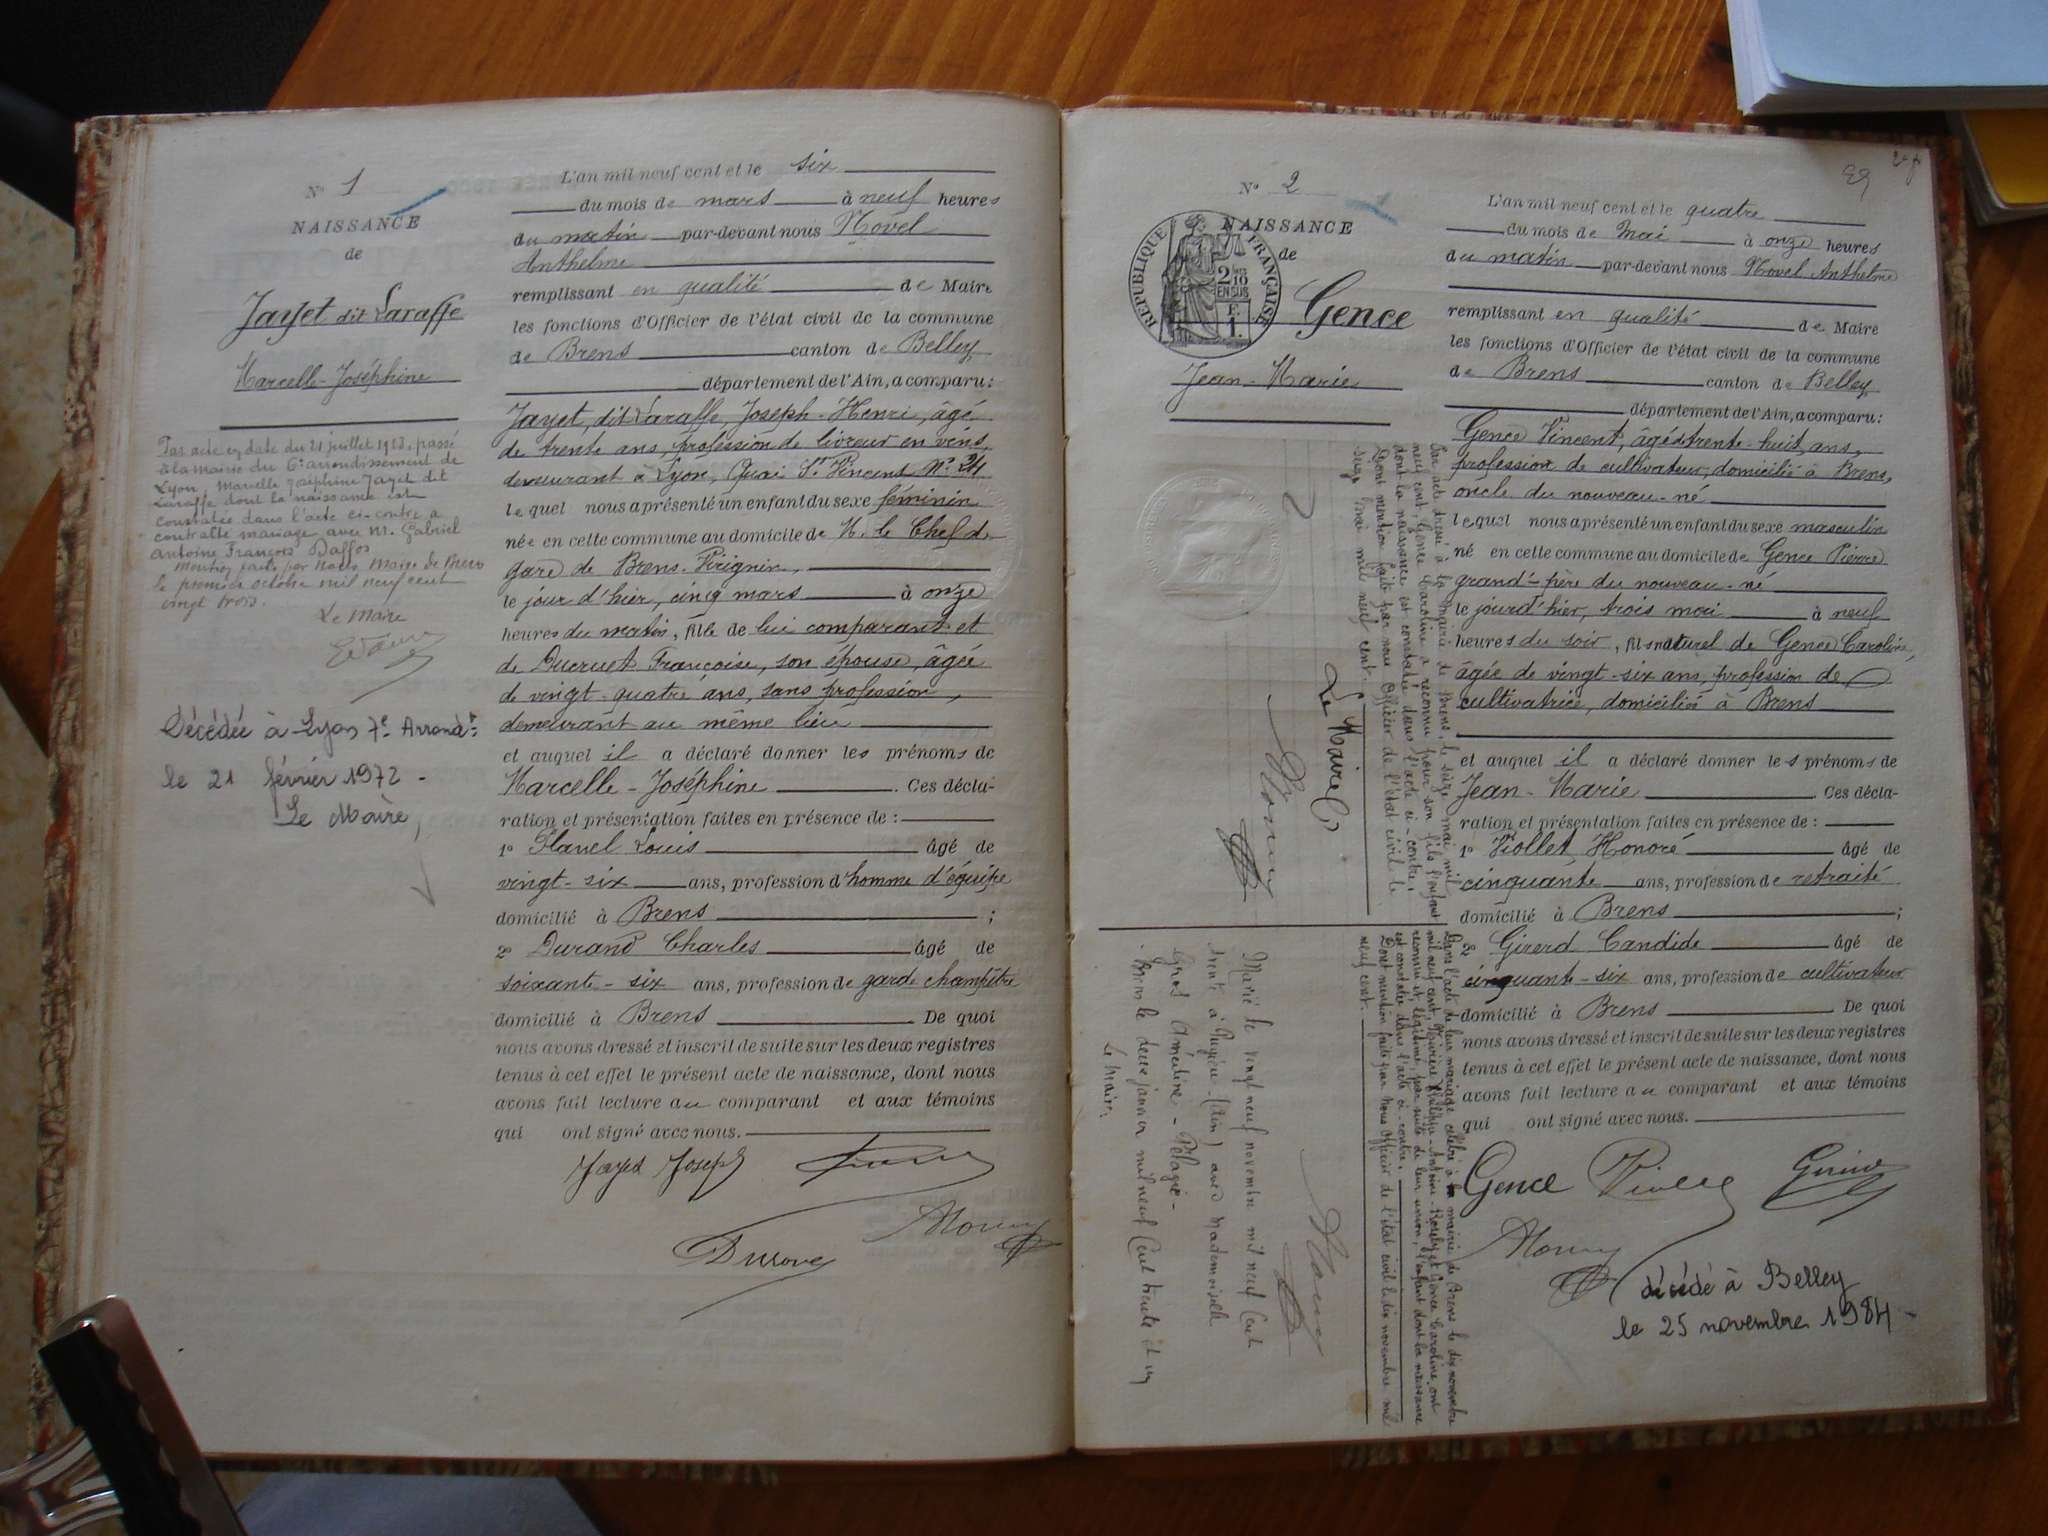 N° 1
NAISSANCE
de
Jayet dit Laraffe
Marcelle-Joséphine
Par acte en date du 21 juillet 1923, passé
à la mairie du 6e arrondissement de
Lyon, Marcelle Joséphine Jayet dit
Laraffe dont la naissance est
constatée dans l'acte ci-contre a
contracté mariage avec M. Gabriel
Antoine François Daffos
Mention faite par Nous, Maire de Brens
le premier octobre mil neuf cent
vingt trois.
Le Maire
Décédée à Lyon 7e Arrondt
le 21 février 1972 -
Le Maire,
L'an mil neuf cent et le six
du mois de mars à neuf heures
du matin par-devant nous Novel
Anthelme
remplissant en qualité de Maire
les fonctions d'Officier de l'état civil de la commune
de Brens canton de Belley
département de l'Ain, a comparu:
Jayet, dit Laraffe, Joseph-Henri, âgé
de trente ans, profession de livreur en vins,
demeurant à Lyon, Quai St Vincent No 24
lequel nous a présenté un enfant du sexe féminin
née en cette commune au domicile de M. le Chef de
gare de Brens-Virignin,
le jour d'hier, cinq mars à onze
heures du matin, fille de lui comparant et
de Ducruet Françoise, son épouse, âgée
de vingt-quatre ans, sans profession,
demeurant au même lieu
et auquel il a déclaré donner les prénoms de
Marcelle-Joséphine. Ces décla-
ration et présentation faites en présence de :
1° Flavel Louis âgé de
vingt-six ans, profession d'homme d'équipe
domicilié à Brens ;
2° Durand Charles âgé de
soixante-six ans, profession de garde champêtre
domicilié à Brens. De quoi
nous avons dressé et inscrit de suite sur les deux registres
tenus à cet effet le présent acte de naissance, dont nous
avons fait lecture au comparant et aux témoins
qui ont signé avec nous.
Jayet Joseph
N° 2
NAISSANCE
de
RÉPUBLIQUE FRANÇAISE
2/10
EN SUS
F.
1.
Gence
Jean-Marie
Par acte dressé à la Mairie de Brens, le seize mai mil
neuf cent, Gence Caroline a reconnu pour son fils l'enfant
dont la naissance est constatée dans l'acte ci-contre.
Dont mention faite par nous Officier de l'état civil le
seize mai mil neuf cent.
Le Maire
Dans l'acte de leur mariage célébré à la mairie de Brens le dix novembre
mil neuf cent, Philippe-Antoine et Gence Caroline, ont
reconnu et légitimé, par suite de leur union, l'enfant dont la naissance
est constatée dans l'acte ci-contre.
Dont mention faite par Nous Officier de l'état civil le dix novembre mil
neuf cent.
Marié le vingt neuf novembre mil neuf cent
trente à Pugieu (Ain) avec Mademoiselle
Gros Améline-Pélagie-
Brens le deux janvier mil neuf cent trente et un
Le Maire,
L'an mil neuf cent et le quatre
du mois de Mai à onze heures
du matin par-devant nous Novel Anthelme
remplissant en qualité de Maire
les fonctions d'Officier de l'état civil de la commune
de Brens canton de Belley
département de l'Ain, a comparu:
Gence Vincent, âgé de trente-huit ans,
profession de cultivateur, domicilié à Brens,
oncle du nouveau-né
lequel nous a présenté un enfant du sexe masculin
né en cette commune au domicile de Gence Pierre
grand-père du nouveau-né
le jour d'hier, trois mai à neuf
heures du soir, fils naturel de Gence Caroline,
âgée de vingt-six ans, profession de
cultivatrice, domiciliée à Brens
et auquel il a déclaré donner les prénoms de
Jean-Marie. Ces décla-
ration et présentation faites en présence de :
1° Viollet Honoré âgé de
cinquante ans, profession de retraité
domicilié à Brens ;
2° Girerd Candide âgé de
cinquante-six ans, profession de cultivateur
domicilié à Brens. De quoi
nous avons dressé et inscrit de suite sur les deux registres
tenus à cet effet le présent acte de naissance, dont nous
avons fait lecture au comparant et aux témoins
qui ont signé avec nous.
Gence
décédé à Belley
le 25 novembre 1984 -